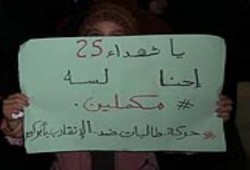 يا شهداء 25
إحنا لسه
# مكملين.
# حركة طالبات ضد الإنقلاب